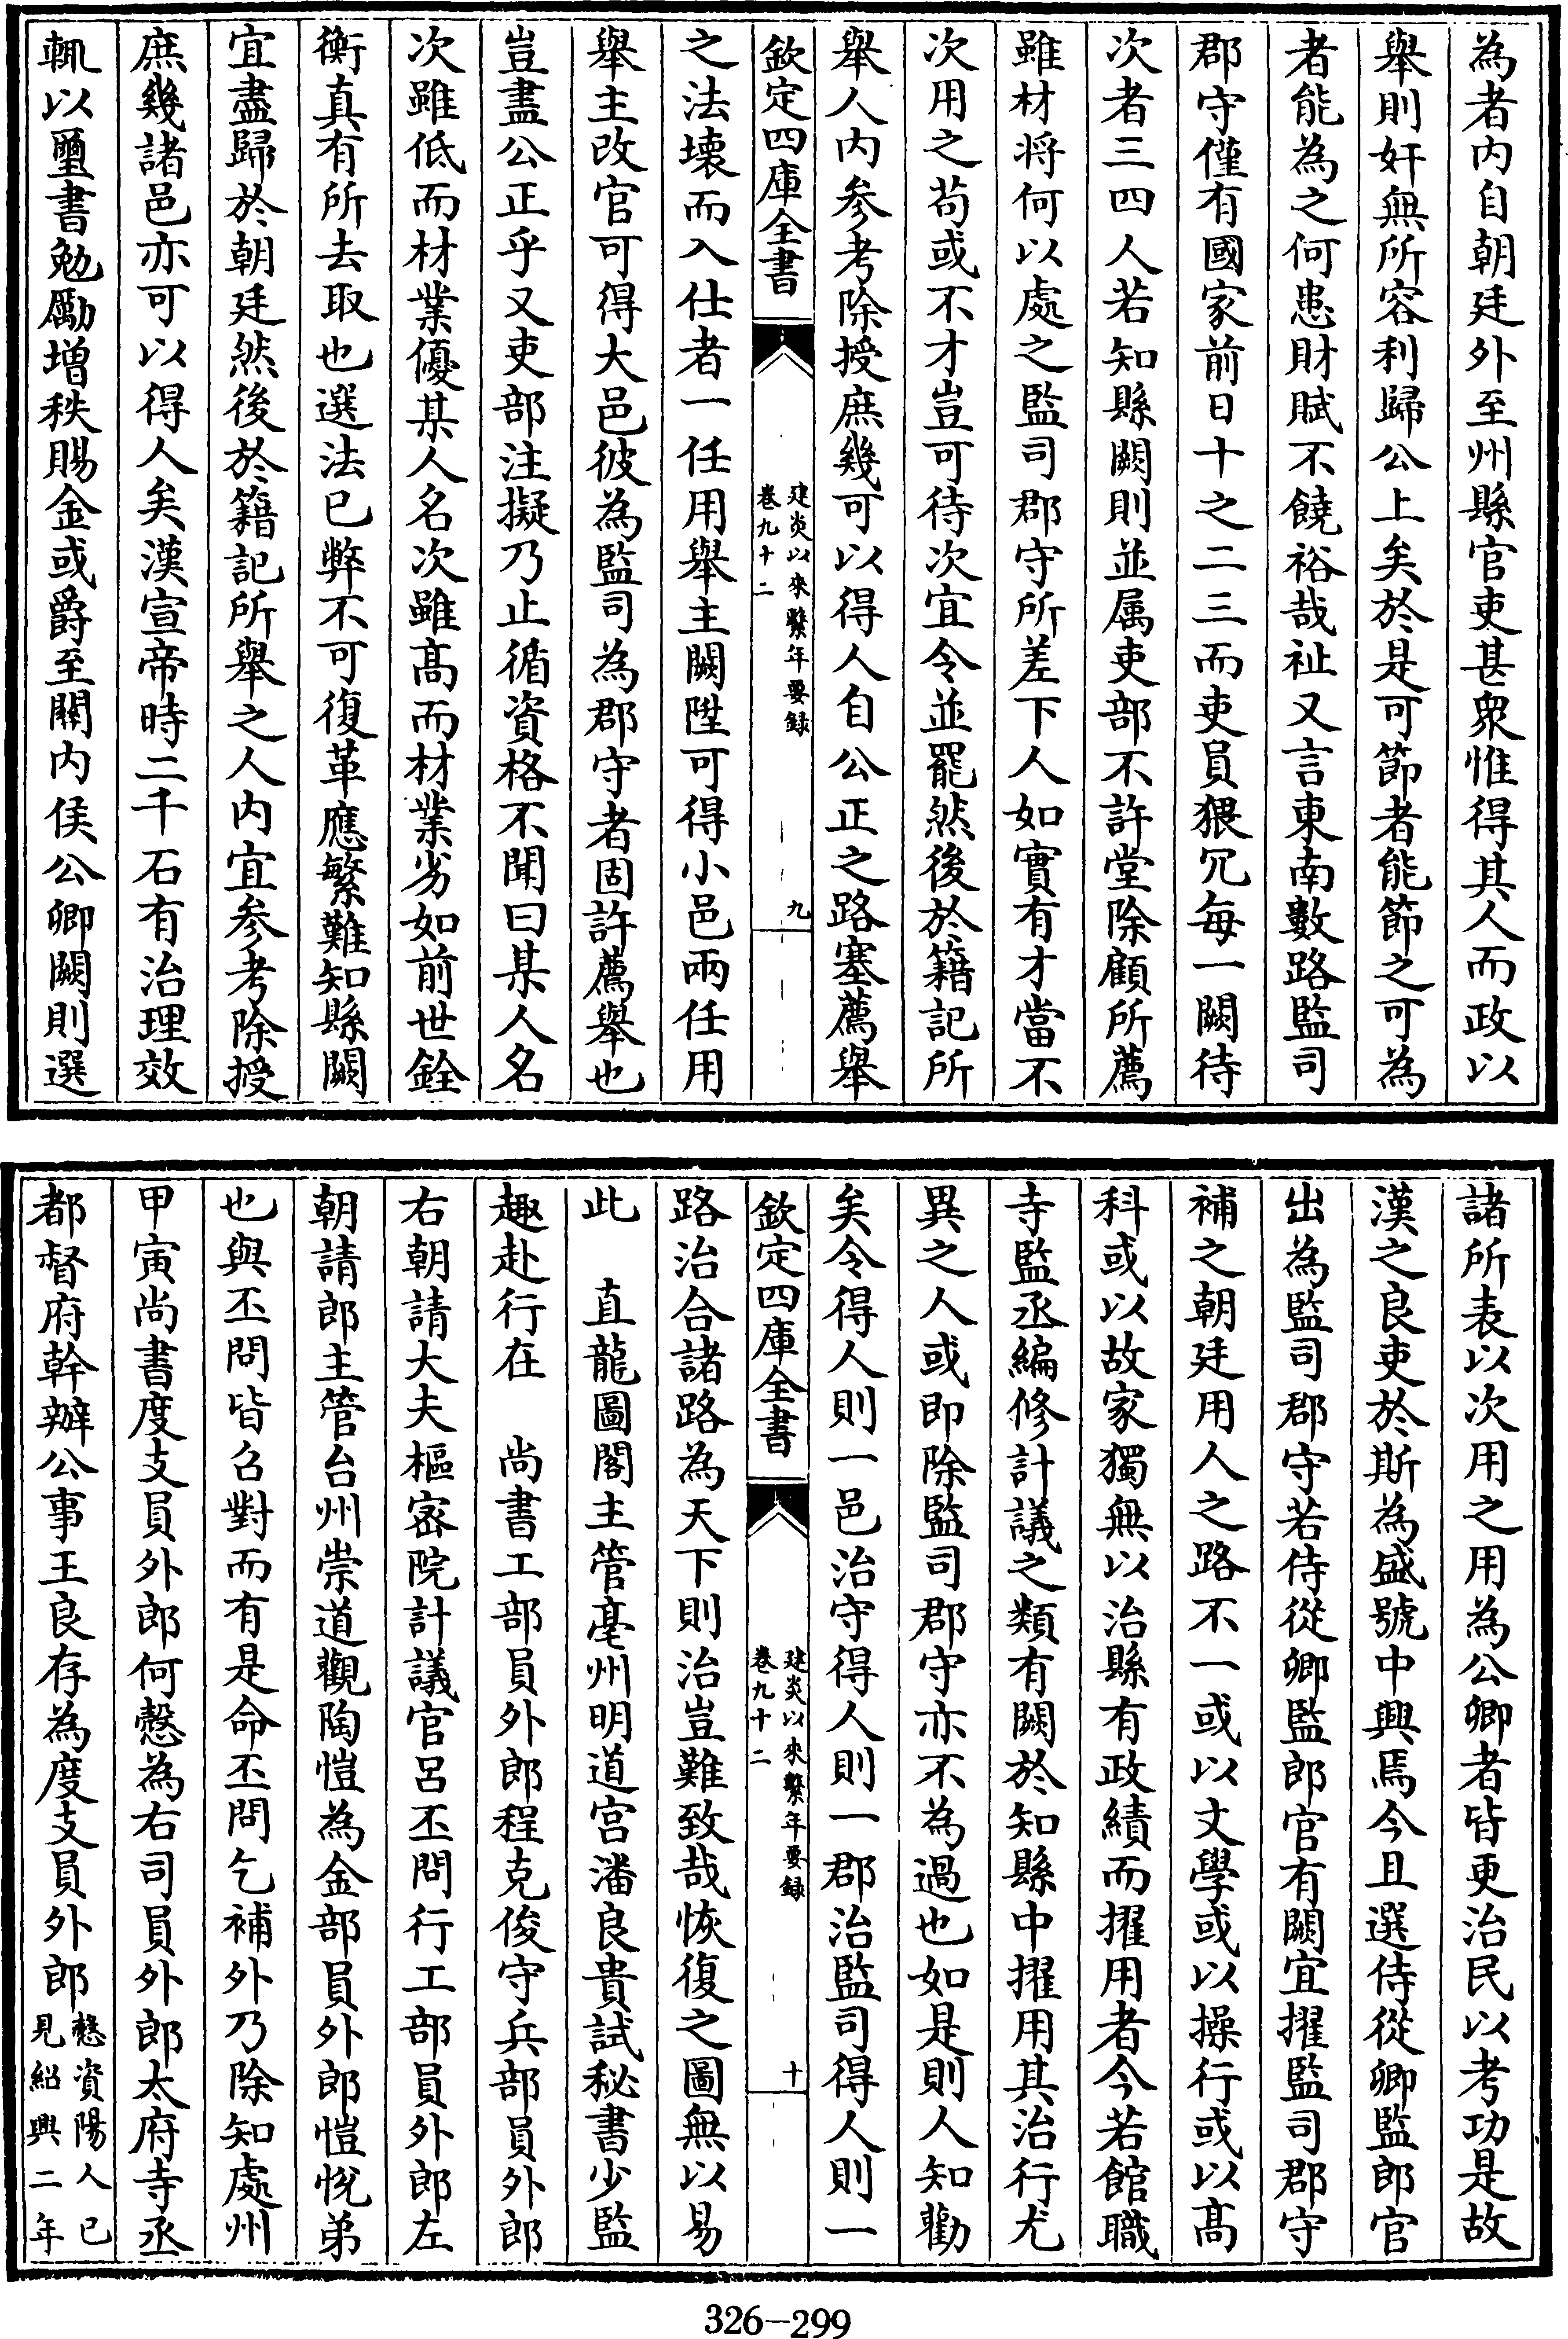 為者内自朝廷外至州縣官吏甚衆惟得其人而政以
舉則奸無所容利歸公上矣於是可節者能節之可為
者能為之何患財賦不饒裕哉祉又言東南數路監司
郡守僅有國家前日十之二三而吏員猥冗毎一闕待
次者三四人若知縣闕則並属吏部不許堂除顧所薦
雖材将何以處之監司郡守所差下人如實有才當不
次用之苟或不才豈可待次宜令並罷然後於籍記所
舉人内参考除授庶幾可以得人自公正之路塞薦舉
欽定四庫全書
建炎以來繫年要録
卷九十二
九
之法壊而入仕者一任用舉主闕陞可得小邑兩任用
舉主改官可得大邑彼為監司為郡守者固許薦舉也
豈盡公正乎又吏部注擬乃止循資格不聞曰某人名
次雖低而材業優某人名次雖髙而材業劣如前世銓
衡真有所去取也選法已弊不可復革應繁難知縣闕
宜盡歸於朝廷然後於籍記所舉之人内宜参考除授
庶幾諸邑亦可以得人矣漢宣帝時二千石有治理效
輒以璽書勉勵増秩賜金或爵至關内侯公卿闕則選
諸所表以次用之用為公卿者皆更治民以考功是故
漢之良吏於斯為盛號中興焉今且選侍從卿監郎官
出為監司郡守若侍從卿監郎官有闕宜擢監司郡守
補之朝廷用人之路不一或以文學或以操行或以髙
科或以故家獨無以治縣有政績而擢用者今若館職
寺監丞編修計議之類有闕於知縣中擢用其治行尤
異之人或即除監司郡守亦不為過也如是則人知勸
矣令得人則一邑治守得人則一郡治監司得人則一
欽定四庫全書
建炎以來繫年要録
卷九十二
十
路治合諸路為天下則治豈難致哉恢復之圖無以易
此　直龍圖閣主管亳州明道宮潘良貴試秘書少監
趣赴行在　尚書工部員外郎程克俊守兵部員外郎
右朝請大夫樞密院計議官呂丕問行工部員外郎左
朝請郎主管台州崇道觀陶愷為金部員外郎愷悅弟
也與丕問皆召對而有是命丕問乞補外乃除知處州
甲寅尚書度支員外郎何慤為右司員外郎太府寺丞
都督府幹辦公事王良存為度支員外郎慤資陽人已
見紹興二年